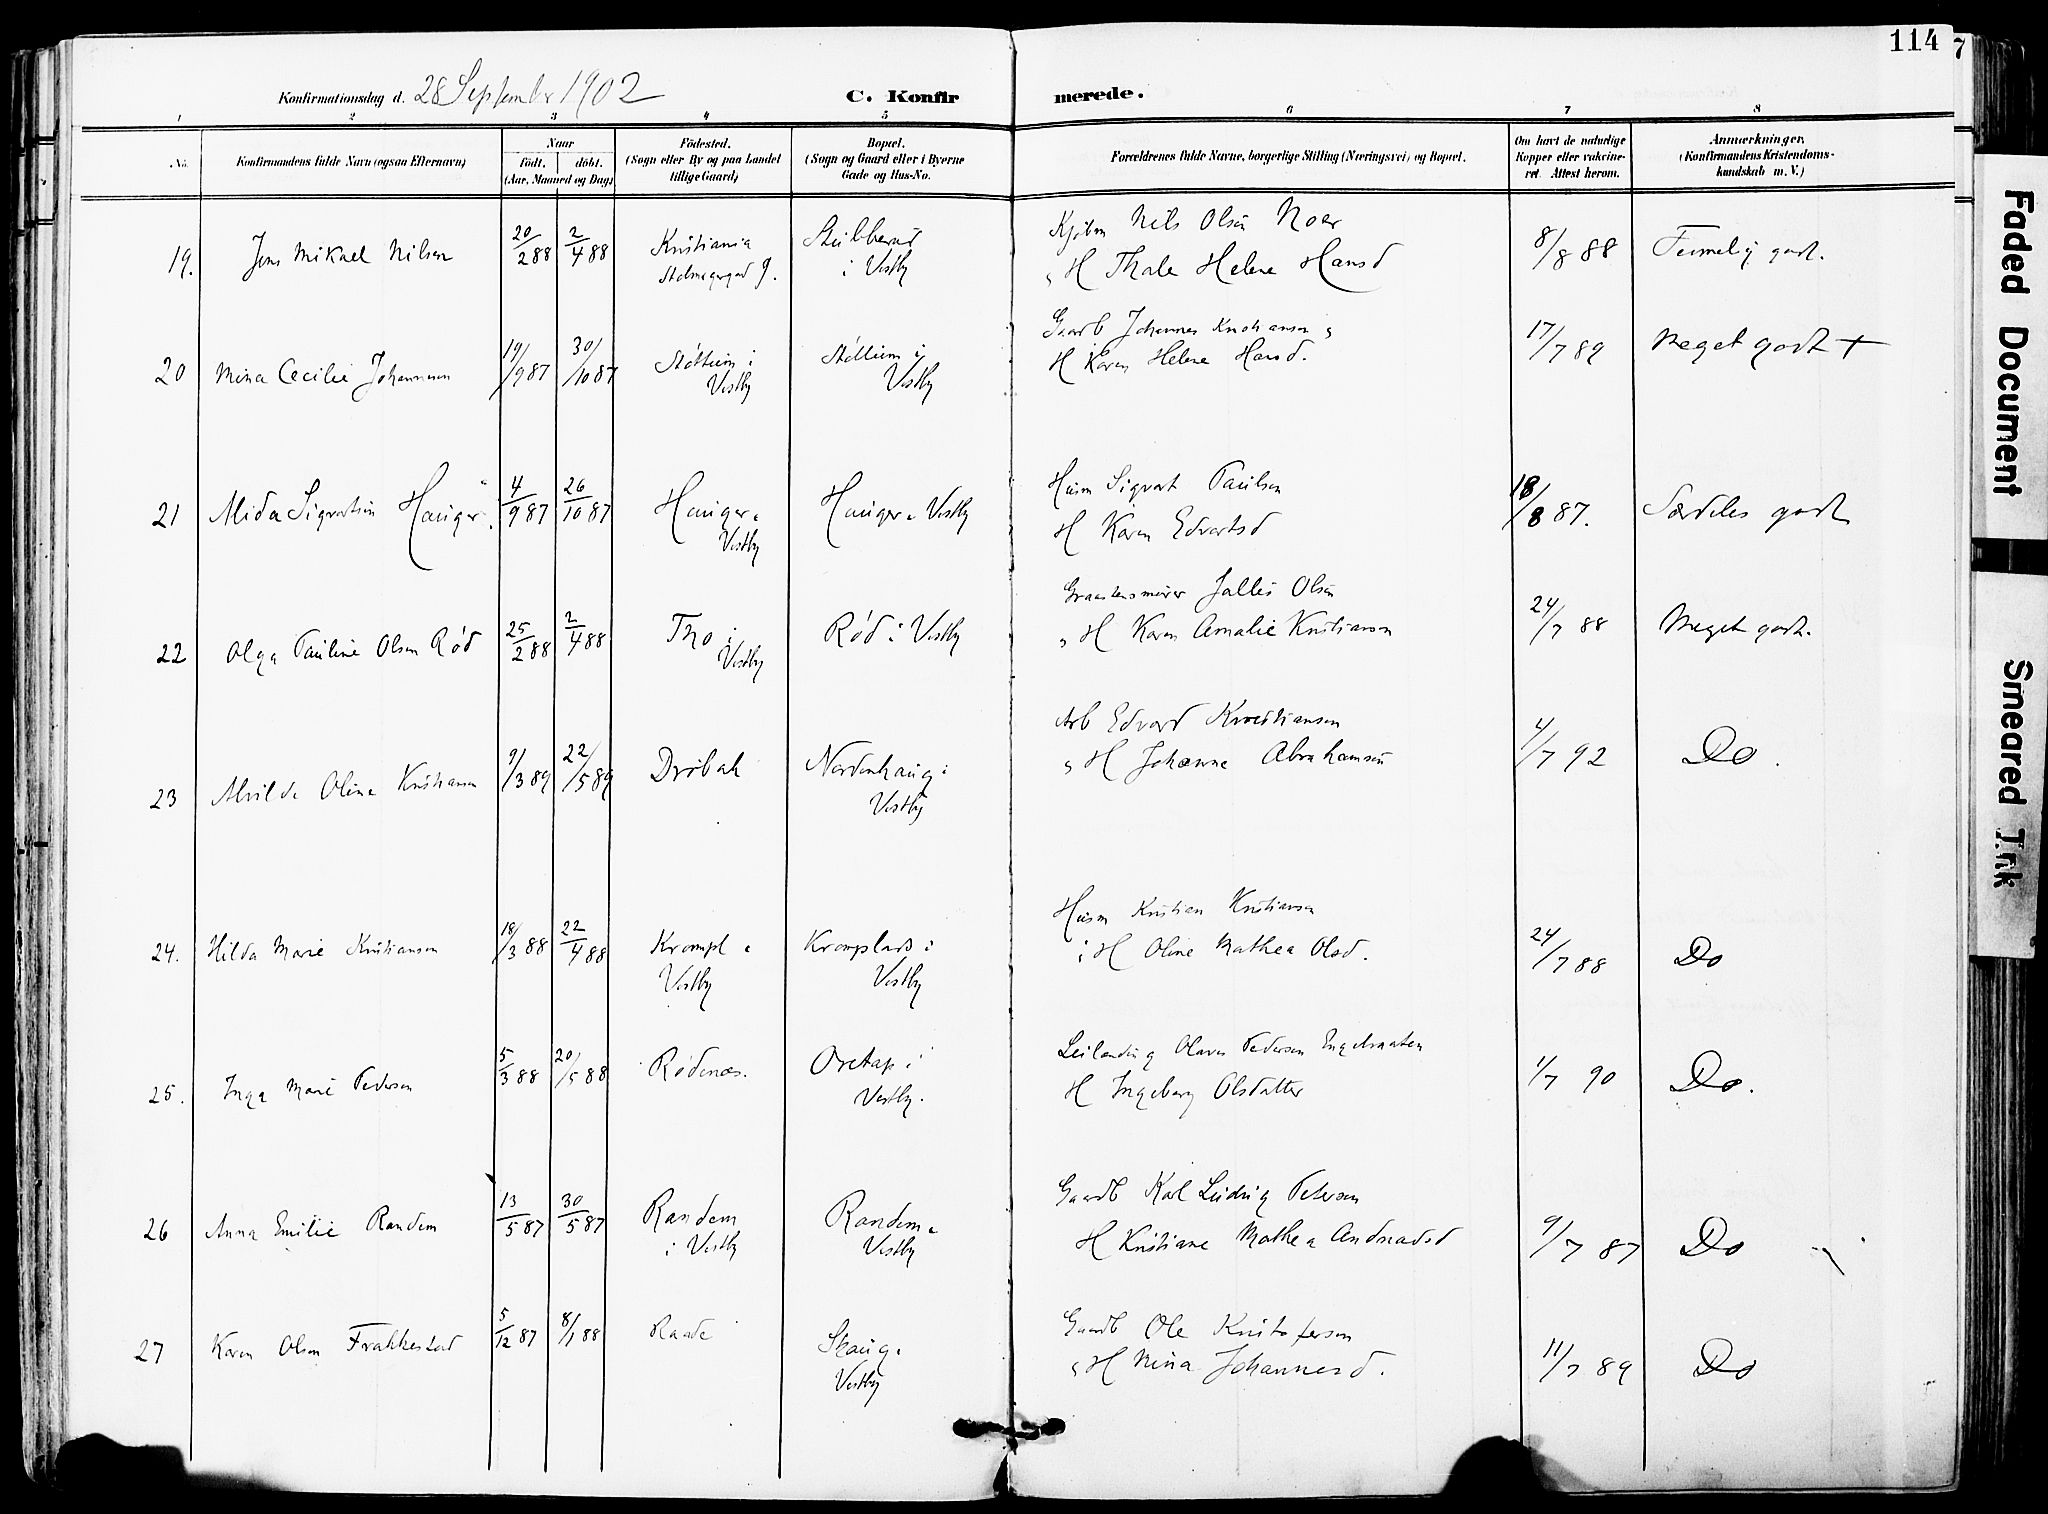 114
7
Konfirmationsdag d. 28 September 1902
C. Konfirmerede.
1 2 3 4 5 6 7 8
No.
Konfirmandens fulde Navn (ogsaa Efternavn)
Naar
født. døbt.
(Aar, Maaned og Dag)
Fødested.
(Sogn eller By og paa Landet
tillige Gaard)
Bopæl.
(Sogn og Gaard eller i Byerne
Gade og Hus-No.
Forældrenes fulde Navne, borgerlige Stilling (Næringsvei) og Bopæl.
Om havt de naturlige
Kopper eller vakcine-
ret. Attest herom.
Anmærkninger.
(Konfirmandens Kristendoms-
kundskab m. V.)
19. Jens Mikael Nilsen 20/2 88 2/4 88 Kristiania
9.
Stubberud
i Vestby
Nils Olsen Noer
H Thale Helene Hansd
8/8 88 Temmelig godt.
20 Mina Cecilie Johannesen 19/9 87 30/10 87 Støttum i
Vestby
Støttum i
Vestby
Gaardb Johannes Kristiansen
H Karen Helene Hansd.
17/7 89 Meget godt +
21 Alida Sigvartsen Hauger 4/9 87 26/10 87 Hauger
Vestby
Hauger Vestby
Husm Sigvart Paulsen
H Karen Edvartsd
18/8 87. Særdeles godt
22 Olga Pauline Olsen Rød 25/2 88 2/4 88 Tho i
Vestby
Rød i Vestby
Graastensmurer Julius Olsen
H Karen Amalie Kristiansen
24/7 88 Meget godt.
23 Alvilde Oline Kristiansen 9/3 89 22/5 89 Drøbak
Nordenhaug i
Vestby
Arb Edvard Kristiansen
H Johanne Abrahamsen
4/7 92 Do.
24. Hilda Marie Kristiansen 18/3 88 22/4 88 Krompl
Vestby
Kromplads i
Vestby
Husm Kristian Kristiansen
H Oline Mathea Olsd.
24/7 88 Do
25. Inga Marie Pedersen 5/3 88 20/5 88 Rødenæs.
i
Vestby.
Leilending Olaves Pedersen
H Ingeborg Olsdatter
1/7 90 Do.
26 Anna Emilie Randem 13/5 87 30/5 87 Randem
i Vestby
Randem
Vestby
Gaardb Karl Ludvig Petersen
H Kristiane Mathea Andreasd
9/7 87 Do
27 Karen Olsen Frakkestad 5/12 87 8/1 88 Raade
Skaug
Vestby
Gaardb Ole Kristofersen
H Mina Johannesd.
11/7 89 Do
Faded Document
Smeared Ink